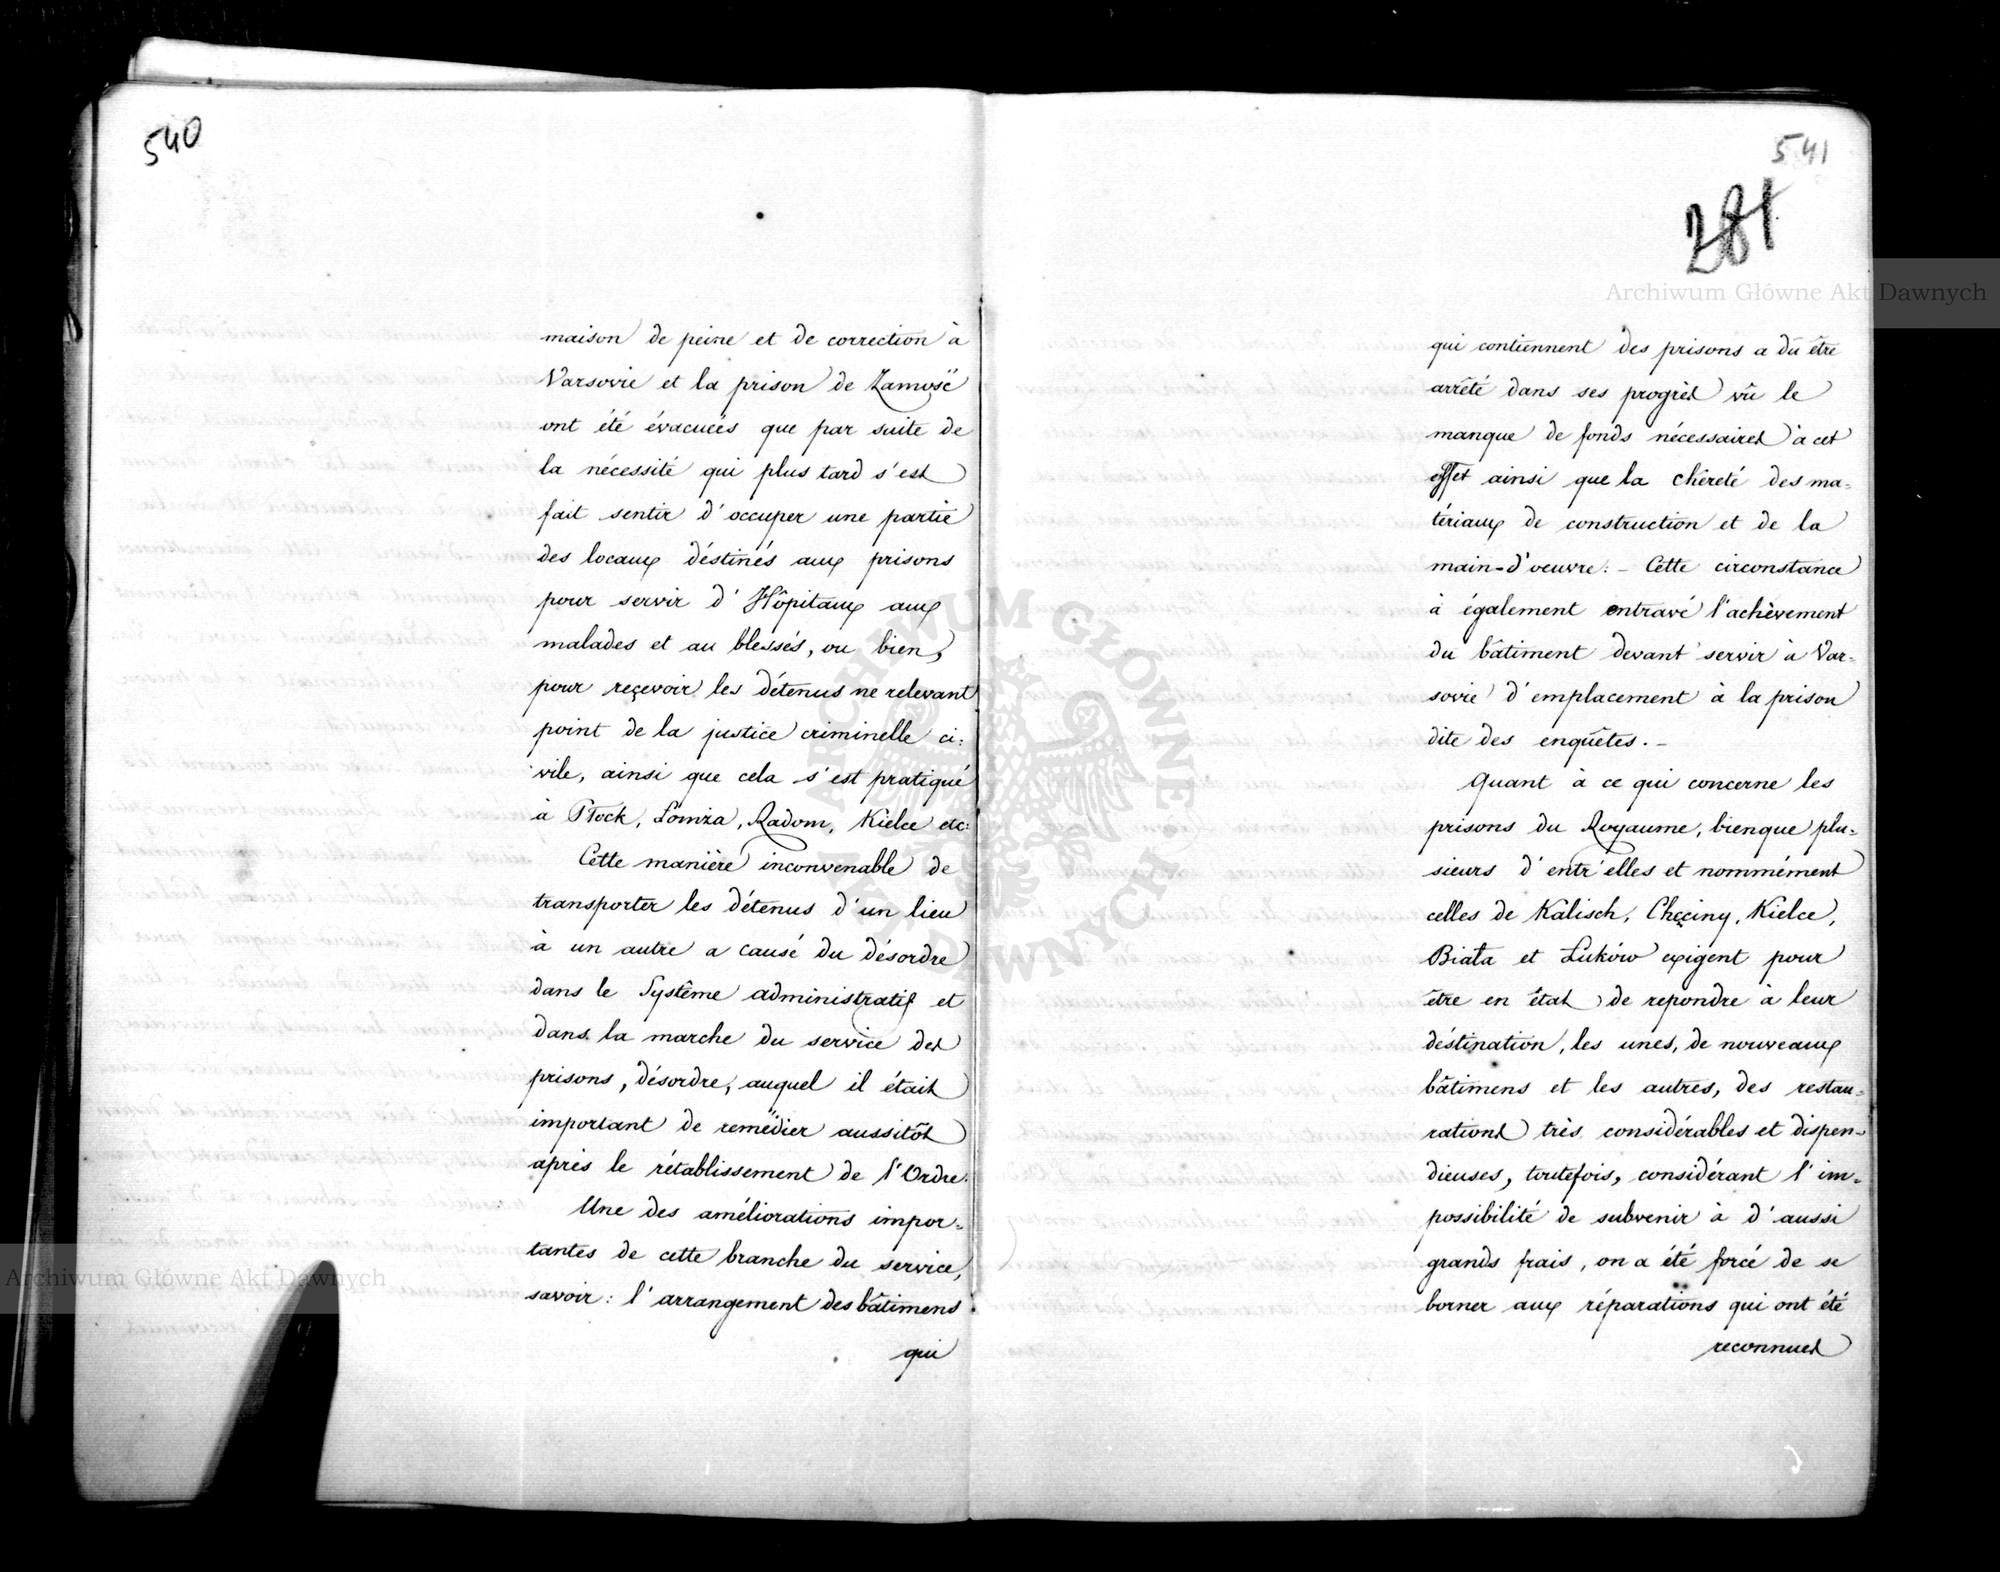 540
maison de peine et de correction à
Varsovie et la prison de Zamość
ont été évacuées que par suite de
la nécessité qui plus tard s'est
fait sentir d'occuper une partie
des locaux déstinés aux prisons
pour servir d'Hôpitaux aux
malades et au blessés, ou bien,
pour reçevoir les détenus ne relevant
point de la justice criminelle ci=
vile, ainsi que cela s'est pratiqué
à Płock, Łomża, Radom, Kielce etc:
Cette manière inconvenable de
transporter les détenus d'un lieu
à un autre a causé du désordre
dans le Système administratif et
dans la marche du service des
prisons, désordre, auquel il était
important de remédier aussitôt
après le rétablissement de l'Ordre.
Une des améliorations impor=
tantes de cette branche du service,
savoir: l'arrangement des bâtimens
qui
541
281
qui contiennent des prisons a dû être
arrêté dans ses progrès vû le
manque de fonds nécessaires à cet
effet ainsi que la chèreté des ma=
tériaux de construction et de la
main-d'oeuvre: - Cette circonstance
à également entravé l'achèvement
du bâtiment devant servir à Var=
sovie d'emplacement à la prison
dite des enquêtes. -
Quant à ce qui concerne les
prisons du Royaume, bienque plu=
sieurs d'entr'elles et nommément
celles de Kalisch, Chęciny, Kielce,
Biała et Łuków exigent pour
être en état de repondre à leur
déstination, les unes, de nouveaux
bâtimens et les autres, des restau=
rations très considérables et dispen=
dieuses, toutefois, considérant l'im=
possibilité de subvenir à d'aussi
grands frais, on a été forcé de se
borner aux réparations qui ont été
reconnues
Archiwum Główne Akt Dawnych
Archiwum Główne Akt Dawnych
ARCHIWUM GŁÓWNE AKT DAWNYCH